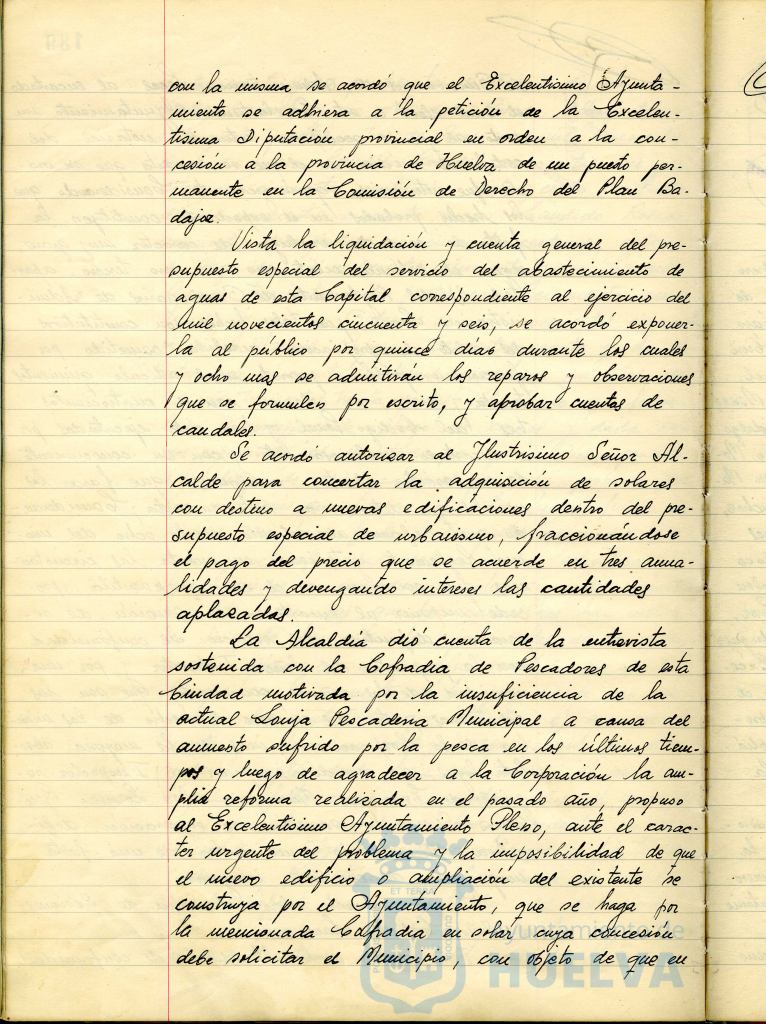 con la misma se acordó que el Excelentísimo Ayunta-
miento se adhiera a la petición de la Excelen-
tísima Diputación provincial en orden a la con-
cesión a la provincia de Huelva de un puesto per-
manente en la Comisión de Derecho del Plan Ba-
dajoz.
Vista la liquidación y cuenta general del pre-
supuesto especial del servicio del abastecimiento de
aguas de esta Capital correspondiente al ejercicio del
mil novecientos cincuenta y seis, se acordó exponer-
la al público por quince días durante los cuales
y ocho mas se admitirán los reparos y observaciones
que se formulen por escrito, y aprobar cuentas de
caudales.
Se acordó autorizar al Ilustrísimo Señor Al-
calde para concertar la adquisición de solares
con destino a nuevas edificaciones dentro del pre-
supuesto especial de urbanismo, fraccionándose
el pago del precio que se acuerde en tres anua-
lidades y devengando intereses las cantidades
aplazadas.
La Alcaldía dió cuenta de la entrevista
sostenida con la Cofradia de Pescadores de esta
Ciudad motivada por la insuficiencia de la
actual Lonja Pescaderia Municipal a causa del
aumento sufrido por la pesca en los últimos tiem-
pos y luego de agradecer a la Corporación la am-
plia reforma realizada en el pasado año, propuso
al Excelentísimo Ayuntamiento Pleno, ante el carac-
ter urgente del problema y la imposibilidad de que
el nuevo edificio ó ampliación del existente se
construya por el Ayuntamiento, que se haga por
la mencionada Cofradia en solar cuya concesión
debe solicitar el Municipio, con objeto de que en
Ayuntamiento de
HUELVA